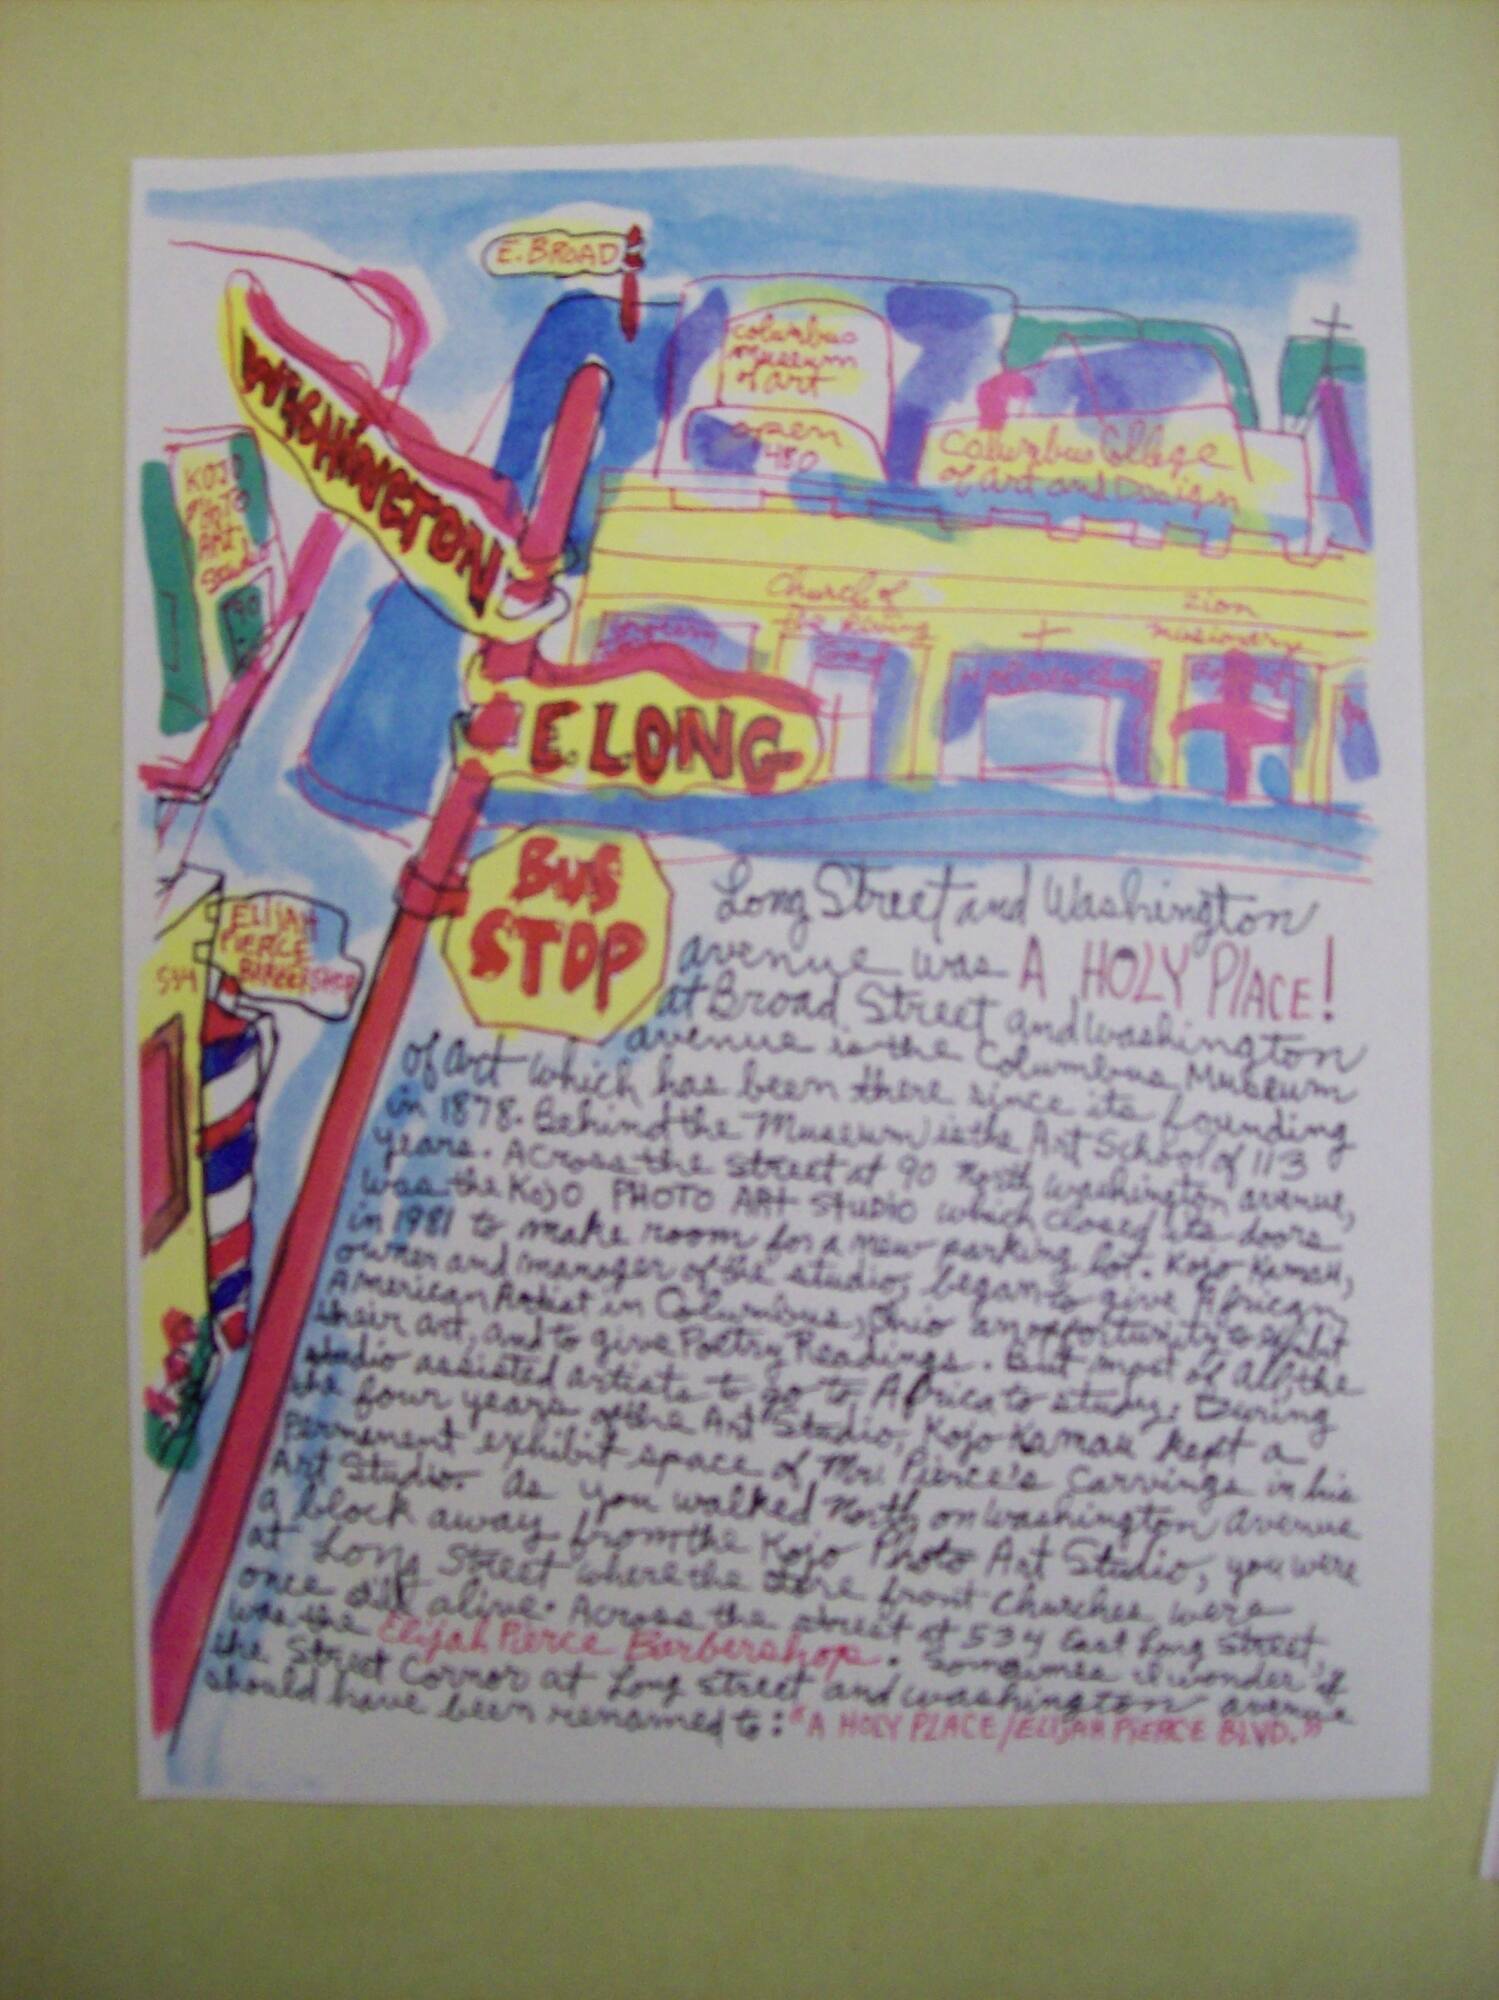 E. BROAD
WASHINGTON
columbus
museum
of art
open
480
Columbus College
of Art and Design
KOJO
PHOTO
ART
90
Church of
the
Zion
missionary
E. LONG
BUS
STOP
ELIJAH
PIERCE
BARBERSHOP
534
Long Street and Washington
avenue was A HOLY PLACE!
at Broad Street and Washington
avenue is the Columbus Museum
of Art which has been there since its founding
in 1878. Behind the Museum is the Art School of 113
years. Across the street at 90 North Washington avenue,
was the KOJO PHOTO ART STUDIO which closed its doors
in 1981 to make room for a new parking lot. Kojo Kamau,
owner and manager of the studio, began to give African
American Artist in Columbus, Ohio an opportunity to exhibit
their art, and to give Poetry Readings. But most of all, the
studio assisted artists to go to Africa to study. During
the four years of the Art Studio, Kojo Kamau kept a
permenent exhibit space of Mr. Pierce's Carvings in his
Art Studio. As you walked North on Washington Avenue
a block away from the Kojo Photo Art Studio, you were
at Long Street where the store front churches were
once still alive. Across the street at 534 East Long Street,
was the Elijah Pierce Barbershop. Sometimes I wonder if
the Street Corner at Long Street and Washington avenue
should have been renamed to: "A HOLY PLACE/ELIJAH PIERCE BLVD."